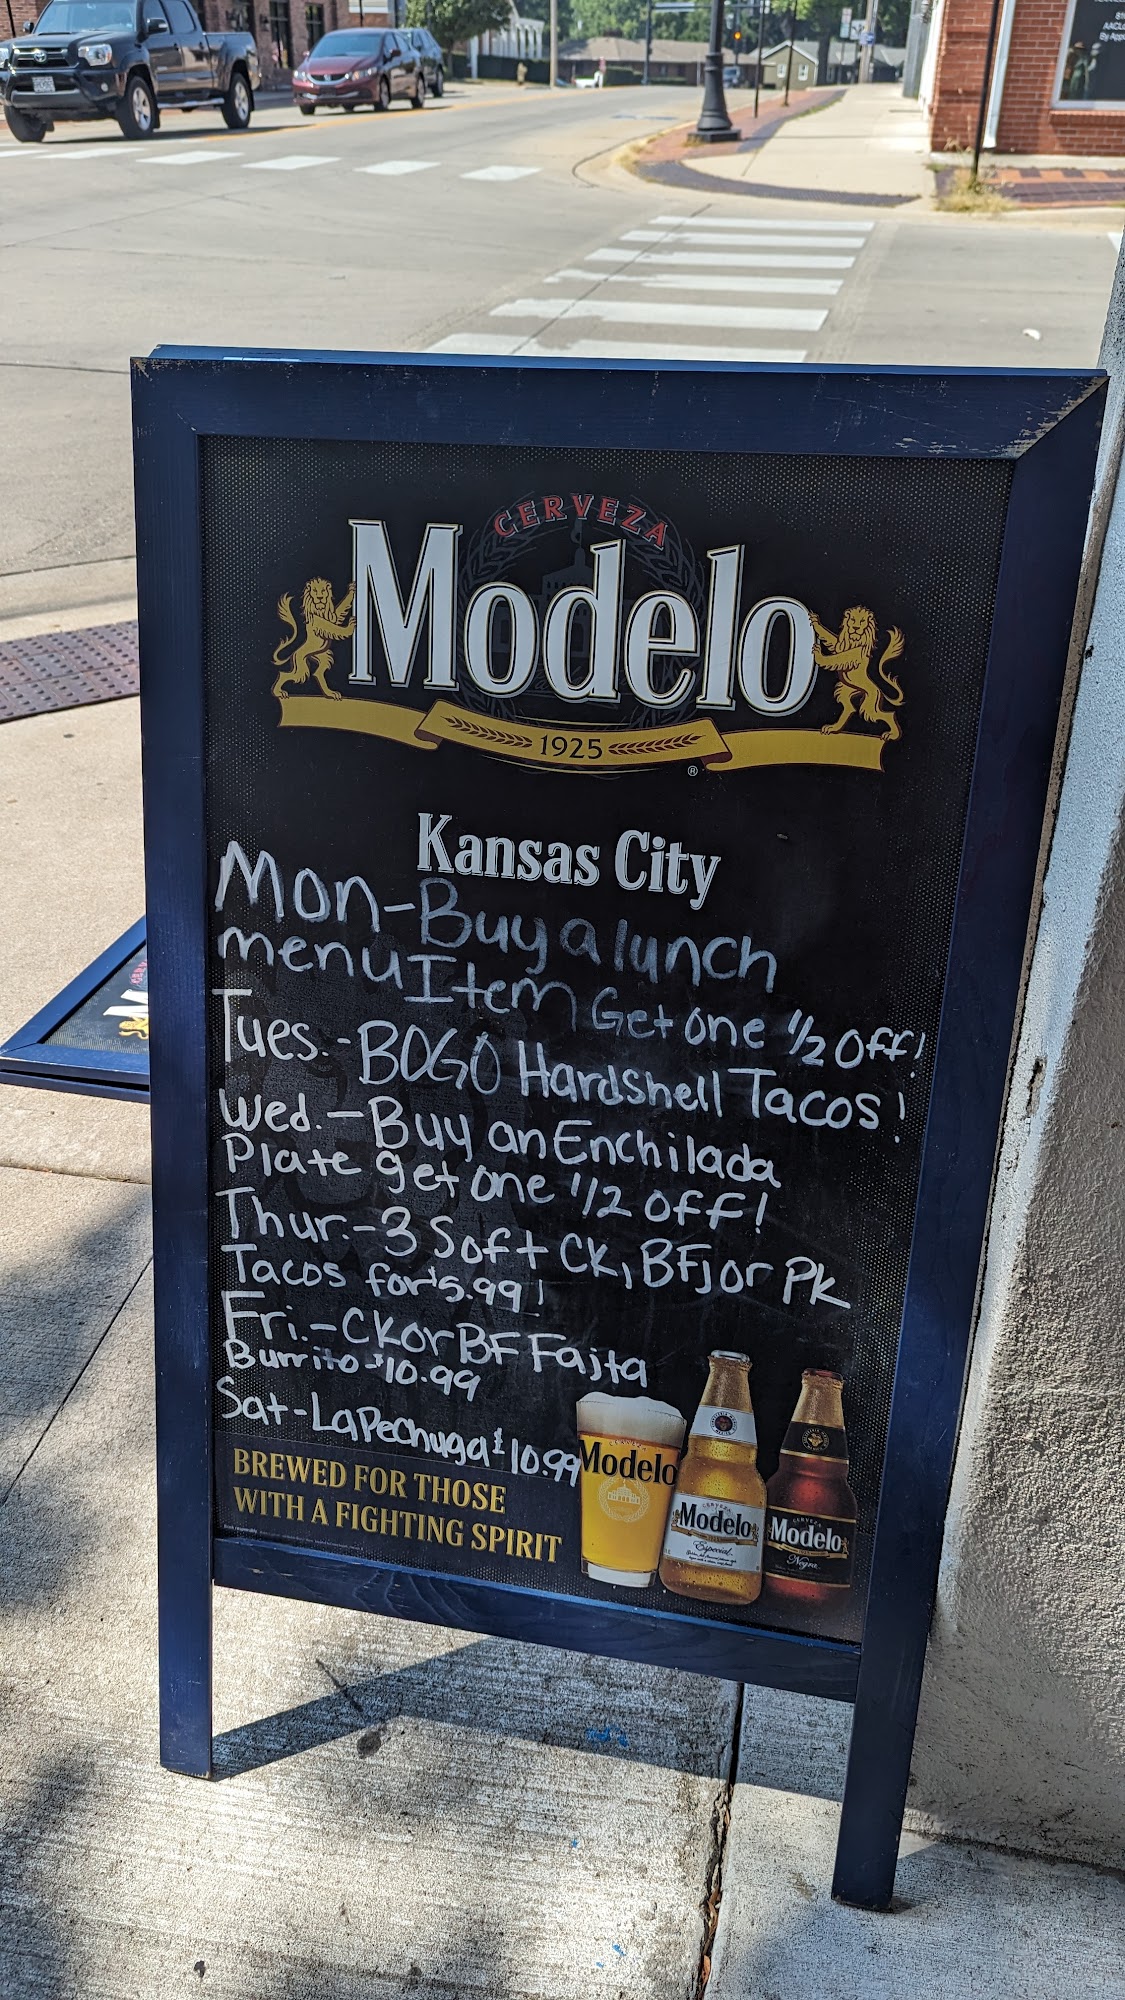 CERVEZA
Modelo
1925
®
Kansas City
Mon-Buy a lunch
menu Item Get one 1/2 off!
Tues.-BOGO Hardshell Tacos!
Wed.-Buy an Enchilada
Plate get one 1/2 off!
Thur.-3 Soft CK, BF, or PK
Tacos for $5.99!
Fri.-CK or BF Fajta
Burrito $10.99
Sat-La Pechuga $10.99
BREWED FOR THOSE
WITH A FIGHTING SPIRIT
Modelo
CERVEZA
Modelo
Especial
CERVEZA
Modelo
Negra